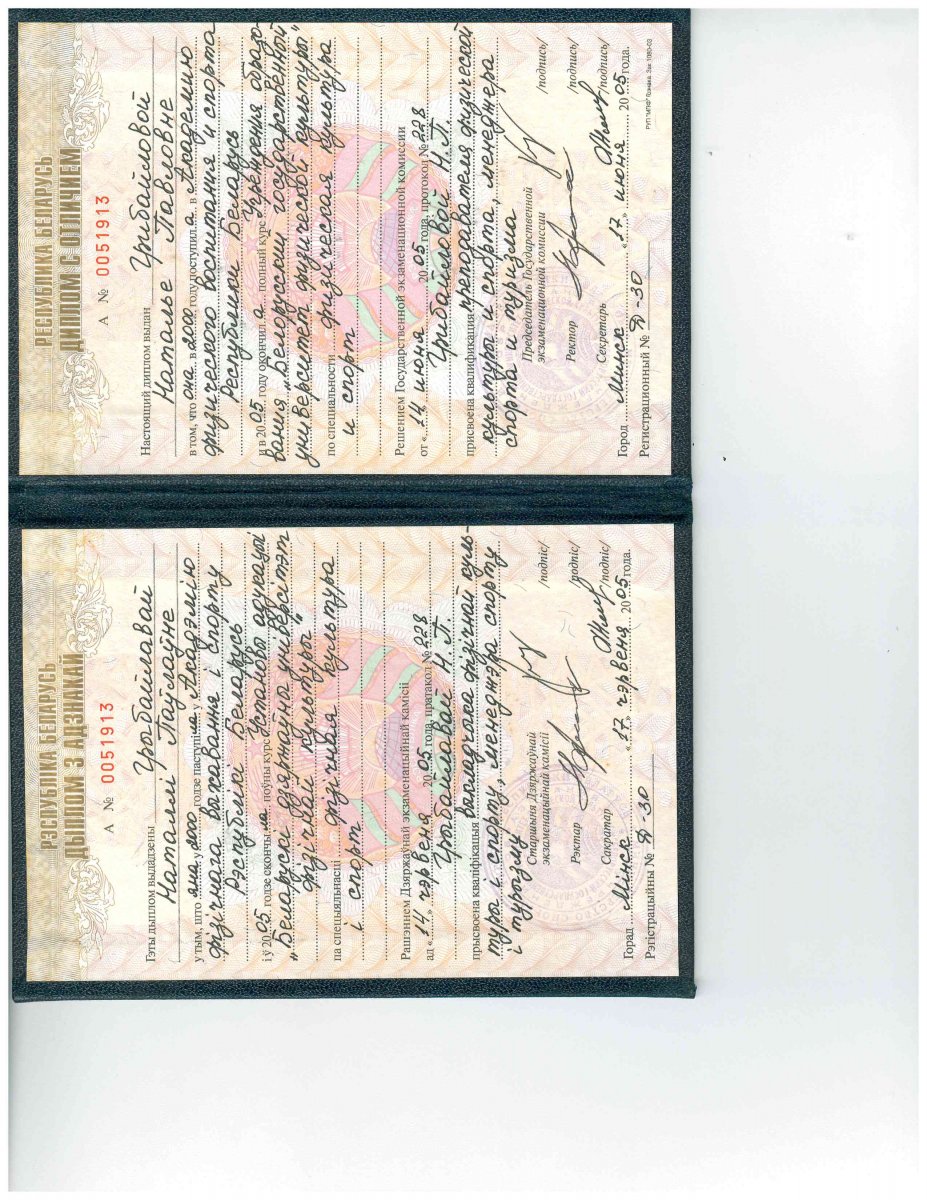 РЭСПУБЛІКА БЕЛАРУСЬ
ДЫПЛОМ З АДЗНАКАЙ
А № 0051913
Гэты дыплом выдадзены
Грыбайлавай
Наталлі Паўлаўне
у тым, што яна у 2000 годзе паступіла у Акадэмію
фізічнага выхавання і спорту
Рэспублікі Беларусь
і ў 2005 годзе скончыла поўны курс Установы адукацыі
"Беларускі дзяржаўны універсітэт
фізічнай культуры"
па спецыяльнасці фізічная культура
і спорт
Рашэннем Дзяржаўнай экзаменацыйнай камісіі
ад «14» чэрвеня 2005 года, пратакол № 228
Грыбайлавай Н.П.
прысвоена кваліфікацыя выкладчыка фізічнай куль-
туры і спорту, менеджэра спорту
і турызму
Старшыня Дзяржаўнай
экзаменацыйнай камісіі /подпіс/
Рэктар /подпіс/
Сакратар /подпіс/
Горад Мінск «17» чэрвеня 2005 года.
Рэгістрацыйны № Д-30
РЕСПУБЛИКА БЕЛАРУСЬ
ДИПЛОМ С ОТЛИЧИЕМ
А № 0051913
Настоящий диплом выдан
Грибайловой
Наталье Павловне
в том, что она в 2000 году поступила в Академию
физического воспитания и спорта
Республики Беларусь
и в 2005 году окончила полный курс Учреждения образо-
вания "Белорусский государственный
университет физической культуры"
по специальности физическая культура
и спорт
Решением Государственной экзаменационной комиссии
от «14» июня 2005 года, протокол № 228
Грибайловой Н.П.
присвоена квалификация преподавателя физической
культуры и спорта, менеджера
спорта и туризма
Председатель Государственной
экзаменационной комиссии /подпись/
Ректор /подпись/
Секретарь /подпись/
Город Минск «17» июня 2005 года.
Регистрационный № Д-30